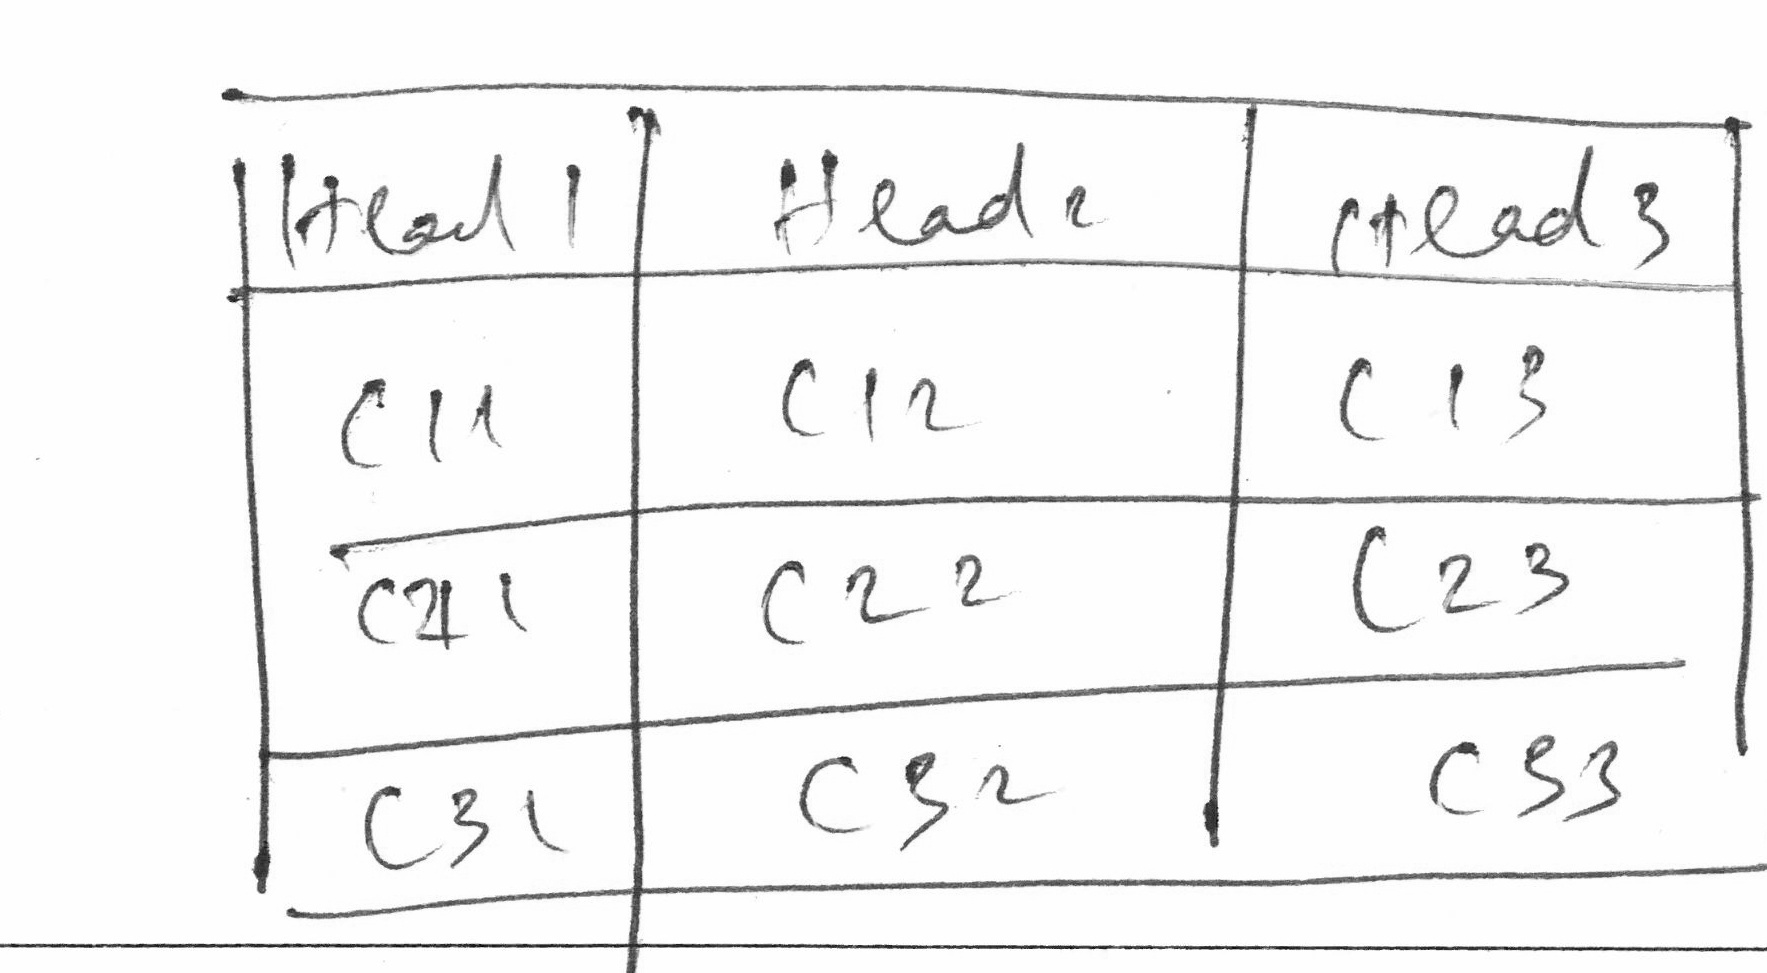 Head 1 Head 2 Head 3
C11 C12 C13
C21 C22 C23
C31 C32 C33